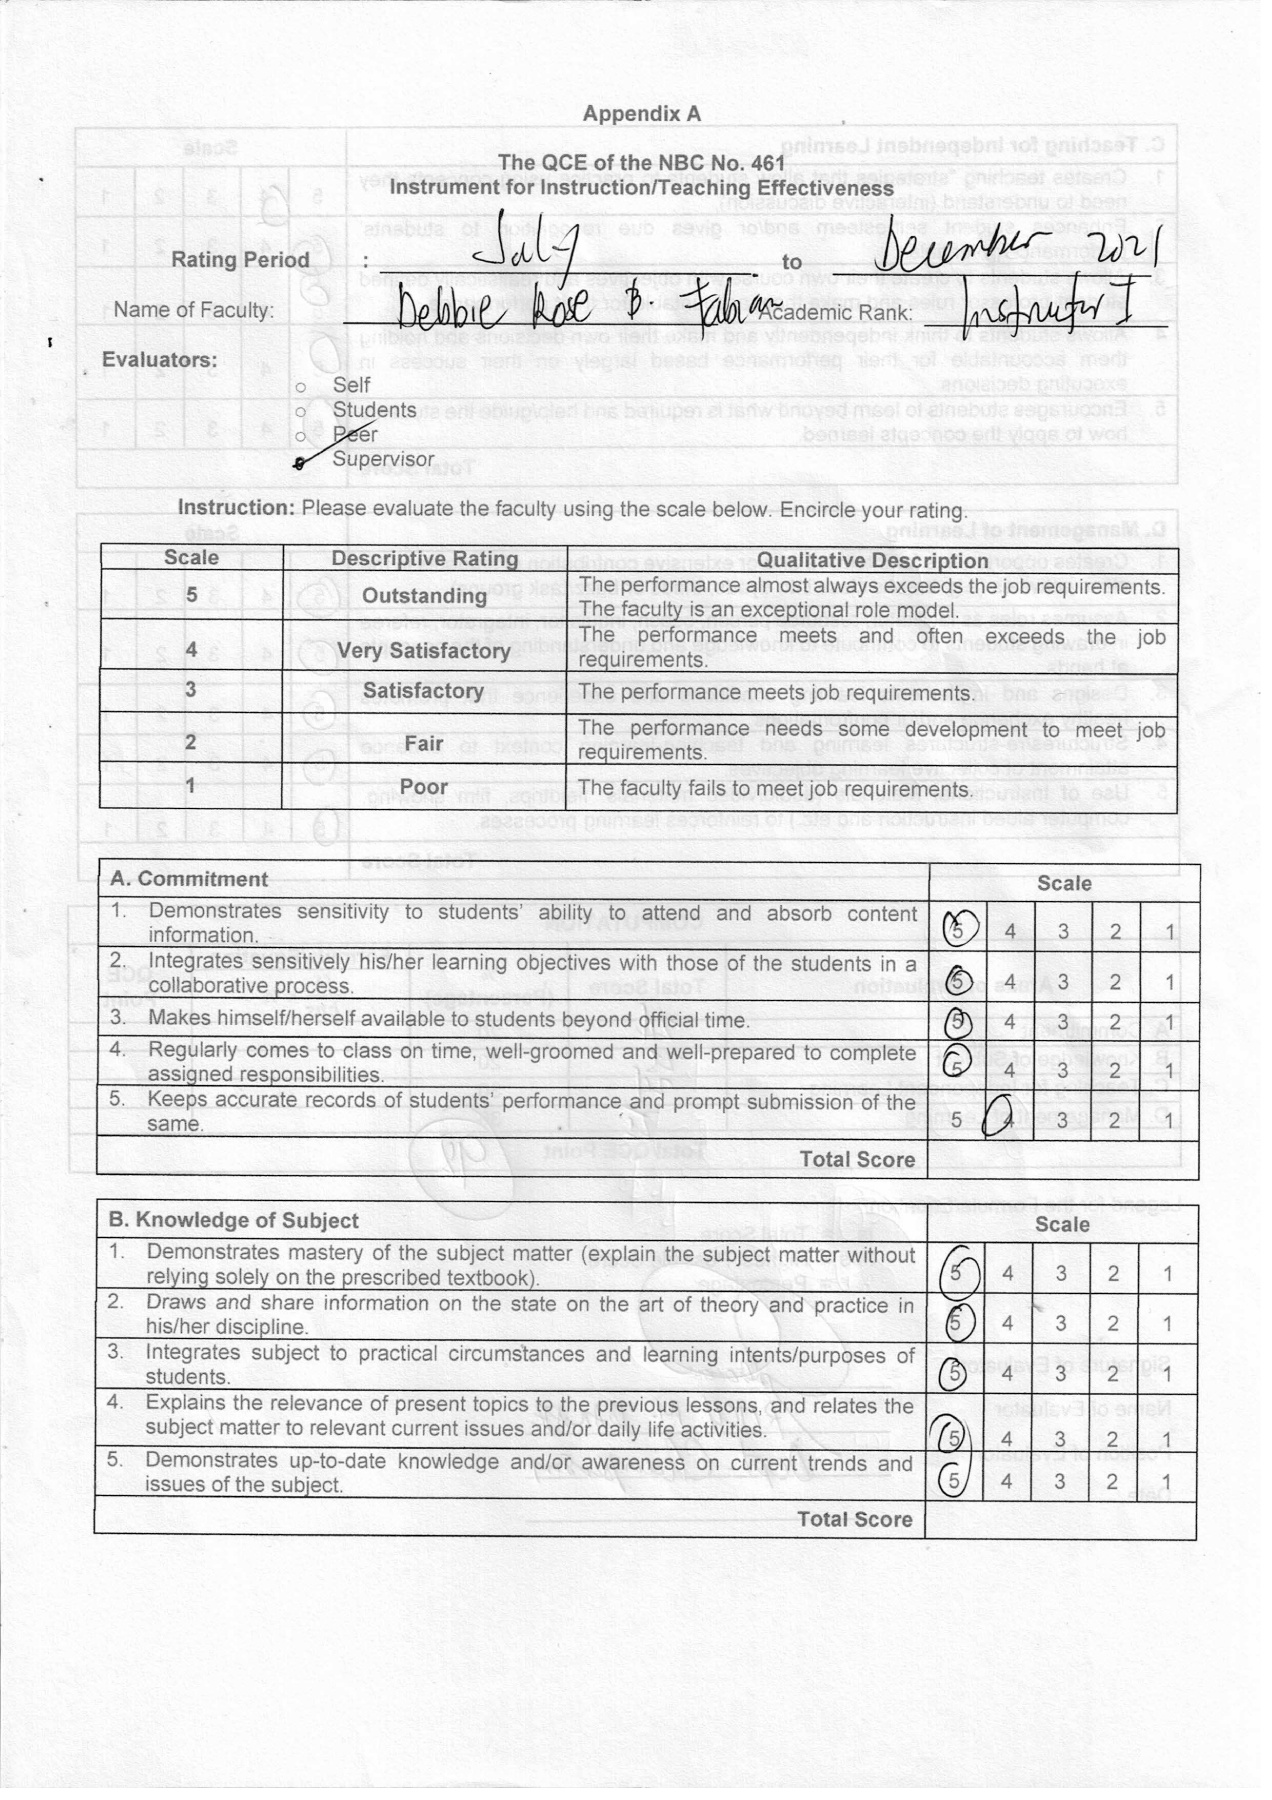 Appendix A
The QCE of the NBC No. 461
Instrument for Instruction/Teaching Effectiveness
Rating Period : July to December 2021
Name of Faculty: Debbie Rose B. Fabian Academic Rank: Instructor I
Evaluators:
○ Self
○ Students
○ Peer
Supervisor
Instruction: Please evaluate the faculty using the scale below. Encircle your rating.
Scale Descriptive Rating Qualitative Description
5 Outstanding The performance almost always exceeds the job requirements.
The faculty is an exceptional role model.
4 Very Satisfactory The performance meets and often exceeds the job
requirements.
3 Satisfactory The performance meets job requirements.
2 Fair The performance needs some development to meet job
requirements.
1 Poor The faculty fails to meet job requirements.
A. Commitment Scale
1. Demonstrates sensitivity to students' ability to attend and absorb content
information. 5 4 3 2 1
2. Integrates sensitively his/her learning objectives with those of the students in a
collaborative process. 5 4 3 2 1
3. Makes himself/herself available to students beyond official time. 5 4 3 2 1
4. Regularly comes to class on time, well-groomed and well-prepared to complete
assigned responsibilities. 5 4 3 2 1
5. Keeps accurate records of students' performance and prompt submission of the
same. 5 4 3 2 1
Total Score
B. Knowledge of Subject Scale
1. Demonstrates mastery of the subject matter (explain the subject matter without
relying solely on the prescribed textbook). 5 4 3 2 1
2. Draws and share information on the state on the art of theory and practice in
his/her discipline. 5 4 3 2 1
3. Integrates subject to practical circumstances and learning intents/purposes of
students. 5 4 3 2 1
4. Explains the relevance of present topics to the previous lessons, and relates the
subject matter to relevant current issues and/or daily life activities. 5 4 3 2 1
5. Demonstrates up-to-date knowledge and/or awareness on current trends and
issues of the subject. 5 4 3 2 1
Total Score